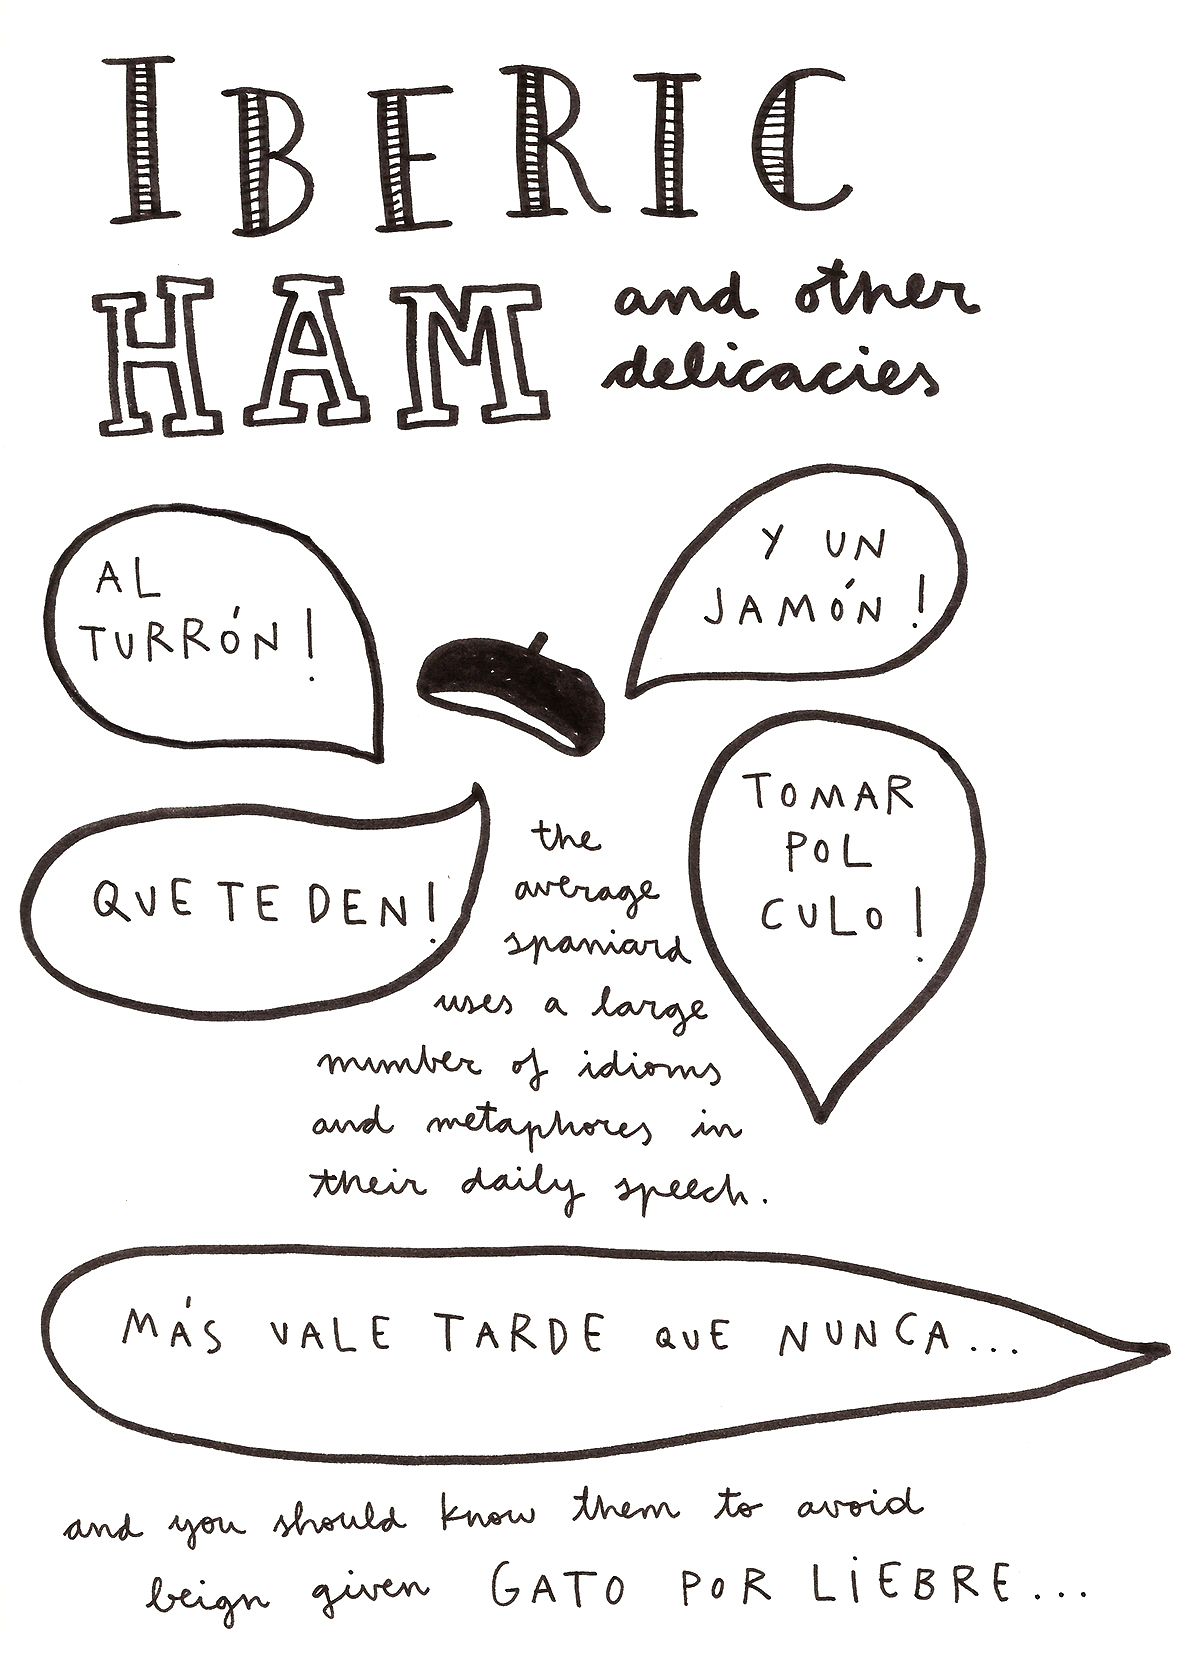 IBERIC
HAM and other
delicacies
AL
TURRÓN!
Y UN
JAMÓN!
QUE TE DEN!
TOMAR
POL
CULO!
the
average
spaniard
uses a large
number of idioms
and metaphores in
their daily speech.
MÁS VALE TARDE QUE NUNCA...
and you should know them to avoid
beign given GATO POR LIEBRE...